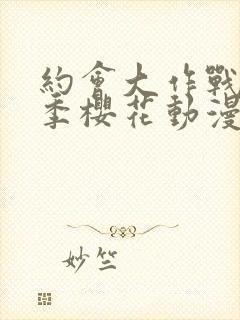 約會大作戰
季櫻花動漫
妙竺